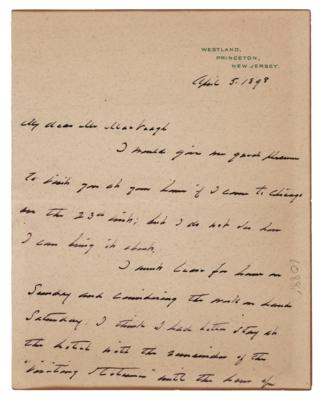 WESTLAND,
PRINCETON,
NEW JERSEY.
April 5. 1898
My dear Mr MacVeagh
It would give me great pleasure
to visit you at your home if I come to Chicago
on the 23rd inst; but I do not see how
I can bring it about.
I must leave for home on
Sunday and considering the work on hand
Saturday. I think I had better stay at
the hotel with the remainder of the
"visiting Statesmen" until the hour of